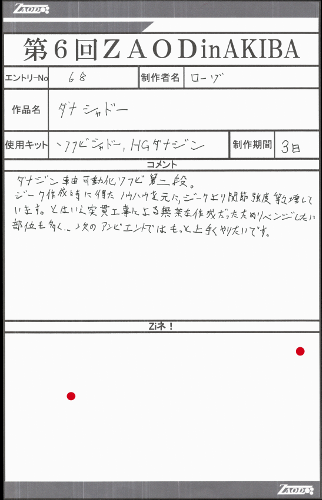 ZAOD
第6回ZAODinAKIBA
エントリーNo 68 制作者名 ローゾ
作品名 ダナシャドー
使用キット ソフビシャドー, HGダナジン 制作期間 3日
コメント
ダナジン軸可動化ソフビ第二段。
ジーク作成時に得たノウハウを元に、ジークより関節強度等増して
います。とはいえ突貫工事による無茶な作成だったためリベンジしたい
部位も多く、次のアンビエントではもっと上手くやりたいです。
Ziネ!
ZAOD